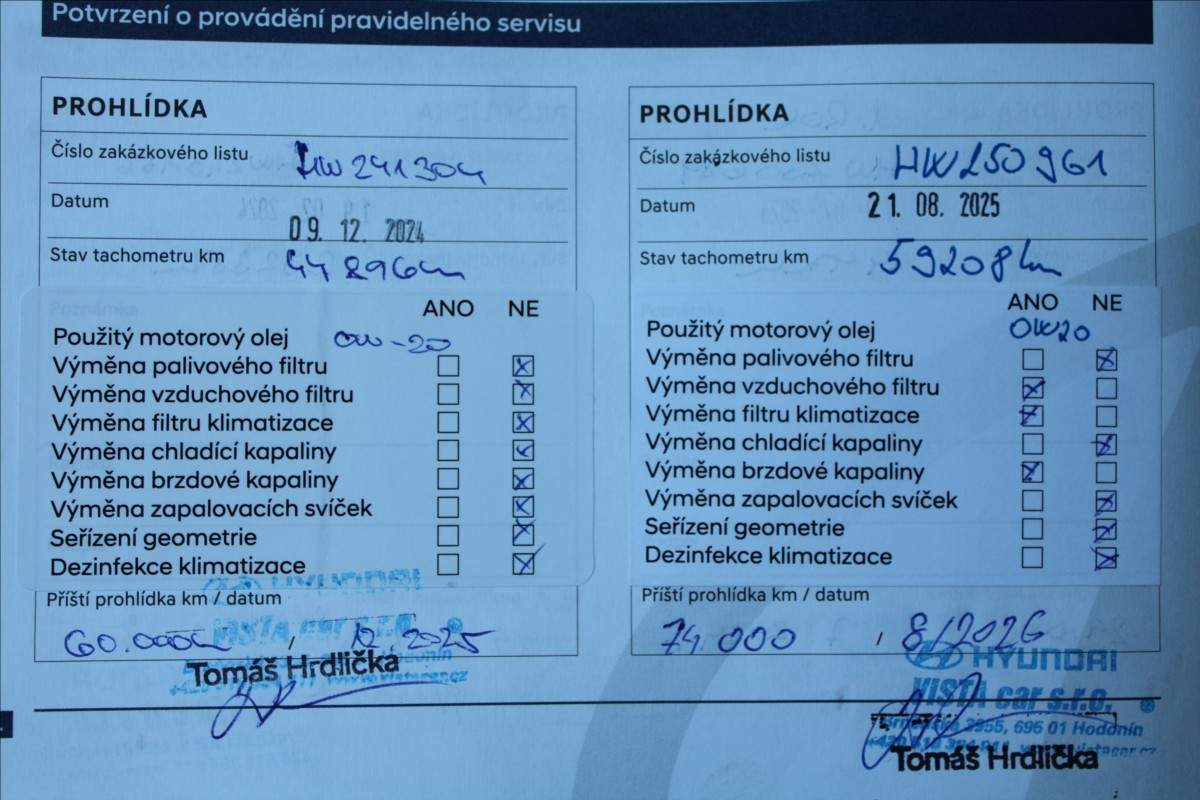 Potvrzení o provádění pravidelného servisu
PROHLÍDKA
Číslo zakázkového listu HW241304
Datum 09. 12. 2024
Stav tachometru km 44896km
ANO NE
Použitý motorový olej 0W-20
Výměna palivového filtru
Výměna vzduchového filtru
Výměna filtru klimatizace
Výměna chladící kapaliny
Výměna brzdové kapaliny
Výměna zapalovacích svíček
Seřízení geometrie
Dezinfekce klimatizace
Příští prohlídka km / datum
60.000km / 12. 2025
HYUNDAI
VISTA car s.r.o. ®
Hodonín
www.vistacar.cz
Tomáš Hrdlička
PROHLÍDKA
Číslo zakázkového listu HW250961
Datum 21. 08. 2025
Stav tachometru km 59208km
ANO NE
Použitý motorový olej 0W20
Výměna palivového filtru
Výměna vzduchového filtru
Výměna filtru klimatizace
Výměna chladící kapaliny
Výměna brzdové kapaliny
Výměna zapalovacích svíček
Seřízení geometrie
Dezinfekce klimatizace
Příští prohlídka km / datum
74.000 / 8/2026
HYUNDAI
VISTA car s.r.o. ®
3955, 695 01 Hodonín
www.vistacar.cz
Tomáš Hrdlička